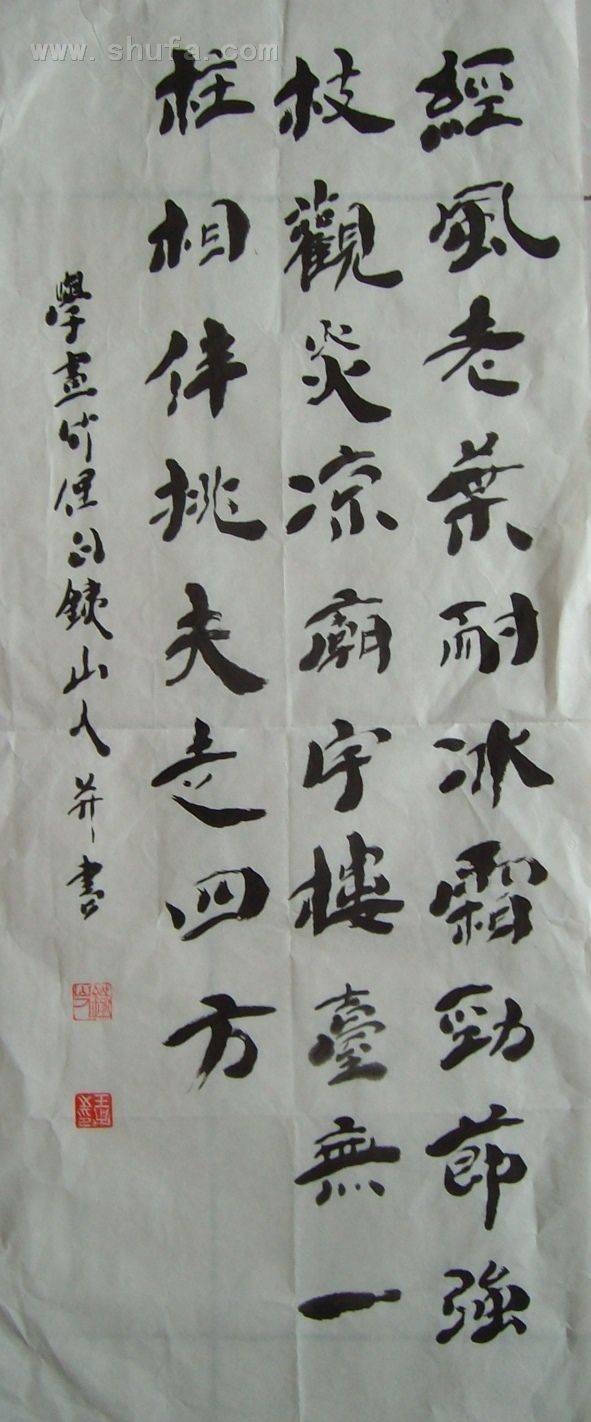 經風老葉耐冰霜勁節強
枝觀炎涼廟宇樓臺無一
柱相伴挑夫走四方
學畫竹偶句鐵山人並書
www.shufa.com